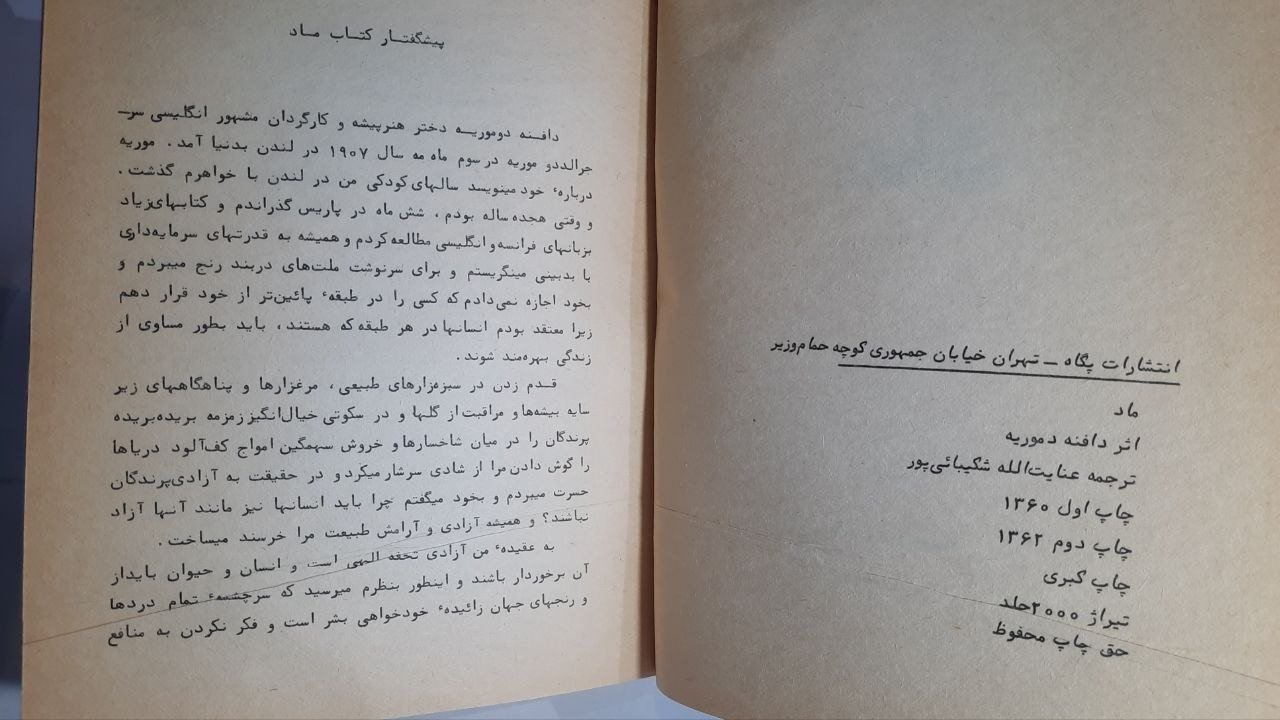 انتشارات پگاه ــ تهران خیابان جمهوری کوچه حمام‌وزیر
ماد
اثر دافنه دموریه
ترجمه عنایت‌الله شکیبائی‌پور
چاپ اول ۱۳۶۰
چاپ دوم ۱۳۶۲
چاپ کبری
تیراژ ۲۰۰۰جلد
حق چاپ محفوظ
پیشگفتار کتاب ماد
دافنه دوموریه دختر هنرپیشه و کارگردان مشهور انگلیسی سر‌ــ
جرالددو موریه در سوم ماه مه سال ۱۹۰۷ در لندن بدنیا آمد . موریه
دربارهٔ خود مینویسد سالهای کودکی من در لندن با خواهرم گذشت .
و وقتی هجده ساله بودم ، شش ماه در پاریس گذراندم و کتابهای‌زیاد
بزبانهای فرانسه و انگلیسی مطالعه کردم و همیشه به قدرتهای سرمایه‌داری
با بدبینی مینگریستم و برای سرنوشت ملت‌های دربند رنج میبردم و
بخود اجازه نمی‌دادم که کسی را در طبقهٔ پائین‌تر از خود قرار دهم
زیرا معتقد بودم انسانها در هر طبقه که هستند ، باید بطور مساوی از
زندگی بهره‌مند شوند .
قدم زدن در سبزه‌زارهای طبیعی ، مرغزارها و پناهگاههای زیر
سایه بیشه‌ها و مراقبت از گلها و در سکوتی خیال‌انگیز زمزمه بریده‌بریده
پرندگان را در میان شاخسارها و خروش سهمگین امواج کف‌آلود دریاها
را گوش دادن مرا از شادی سرشار میکرد و در حقیقت به آزادی پرندگان
حسرت میبردم و بخود میگفتم چرا باید انسانها نیز مانند آنها آزاد
نباشند؟ و همیشه آزادی و آرامش طبیعت مرا خرسند میساخت .
به عقیدهٔ من آزادی تحفه الهی است و انسان و حیوان باید‌از
آن برخوردار باشند و اینطور بنظرم میرسید که سرچشمهٔ تمام دردها
و رنجهای جهان زائیدهٔ خودخواهی بشر است و فکر نکردن به منافع